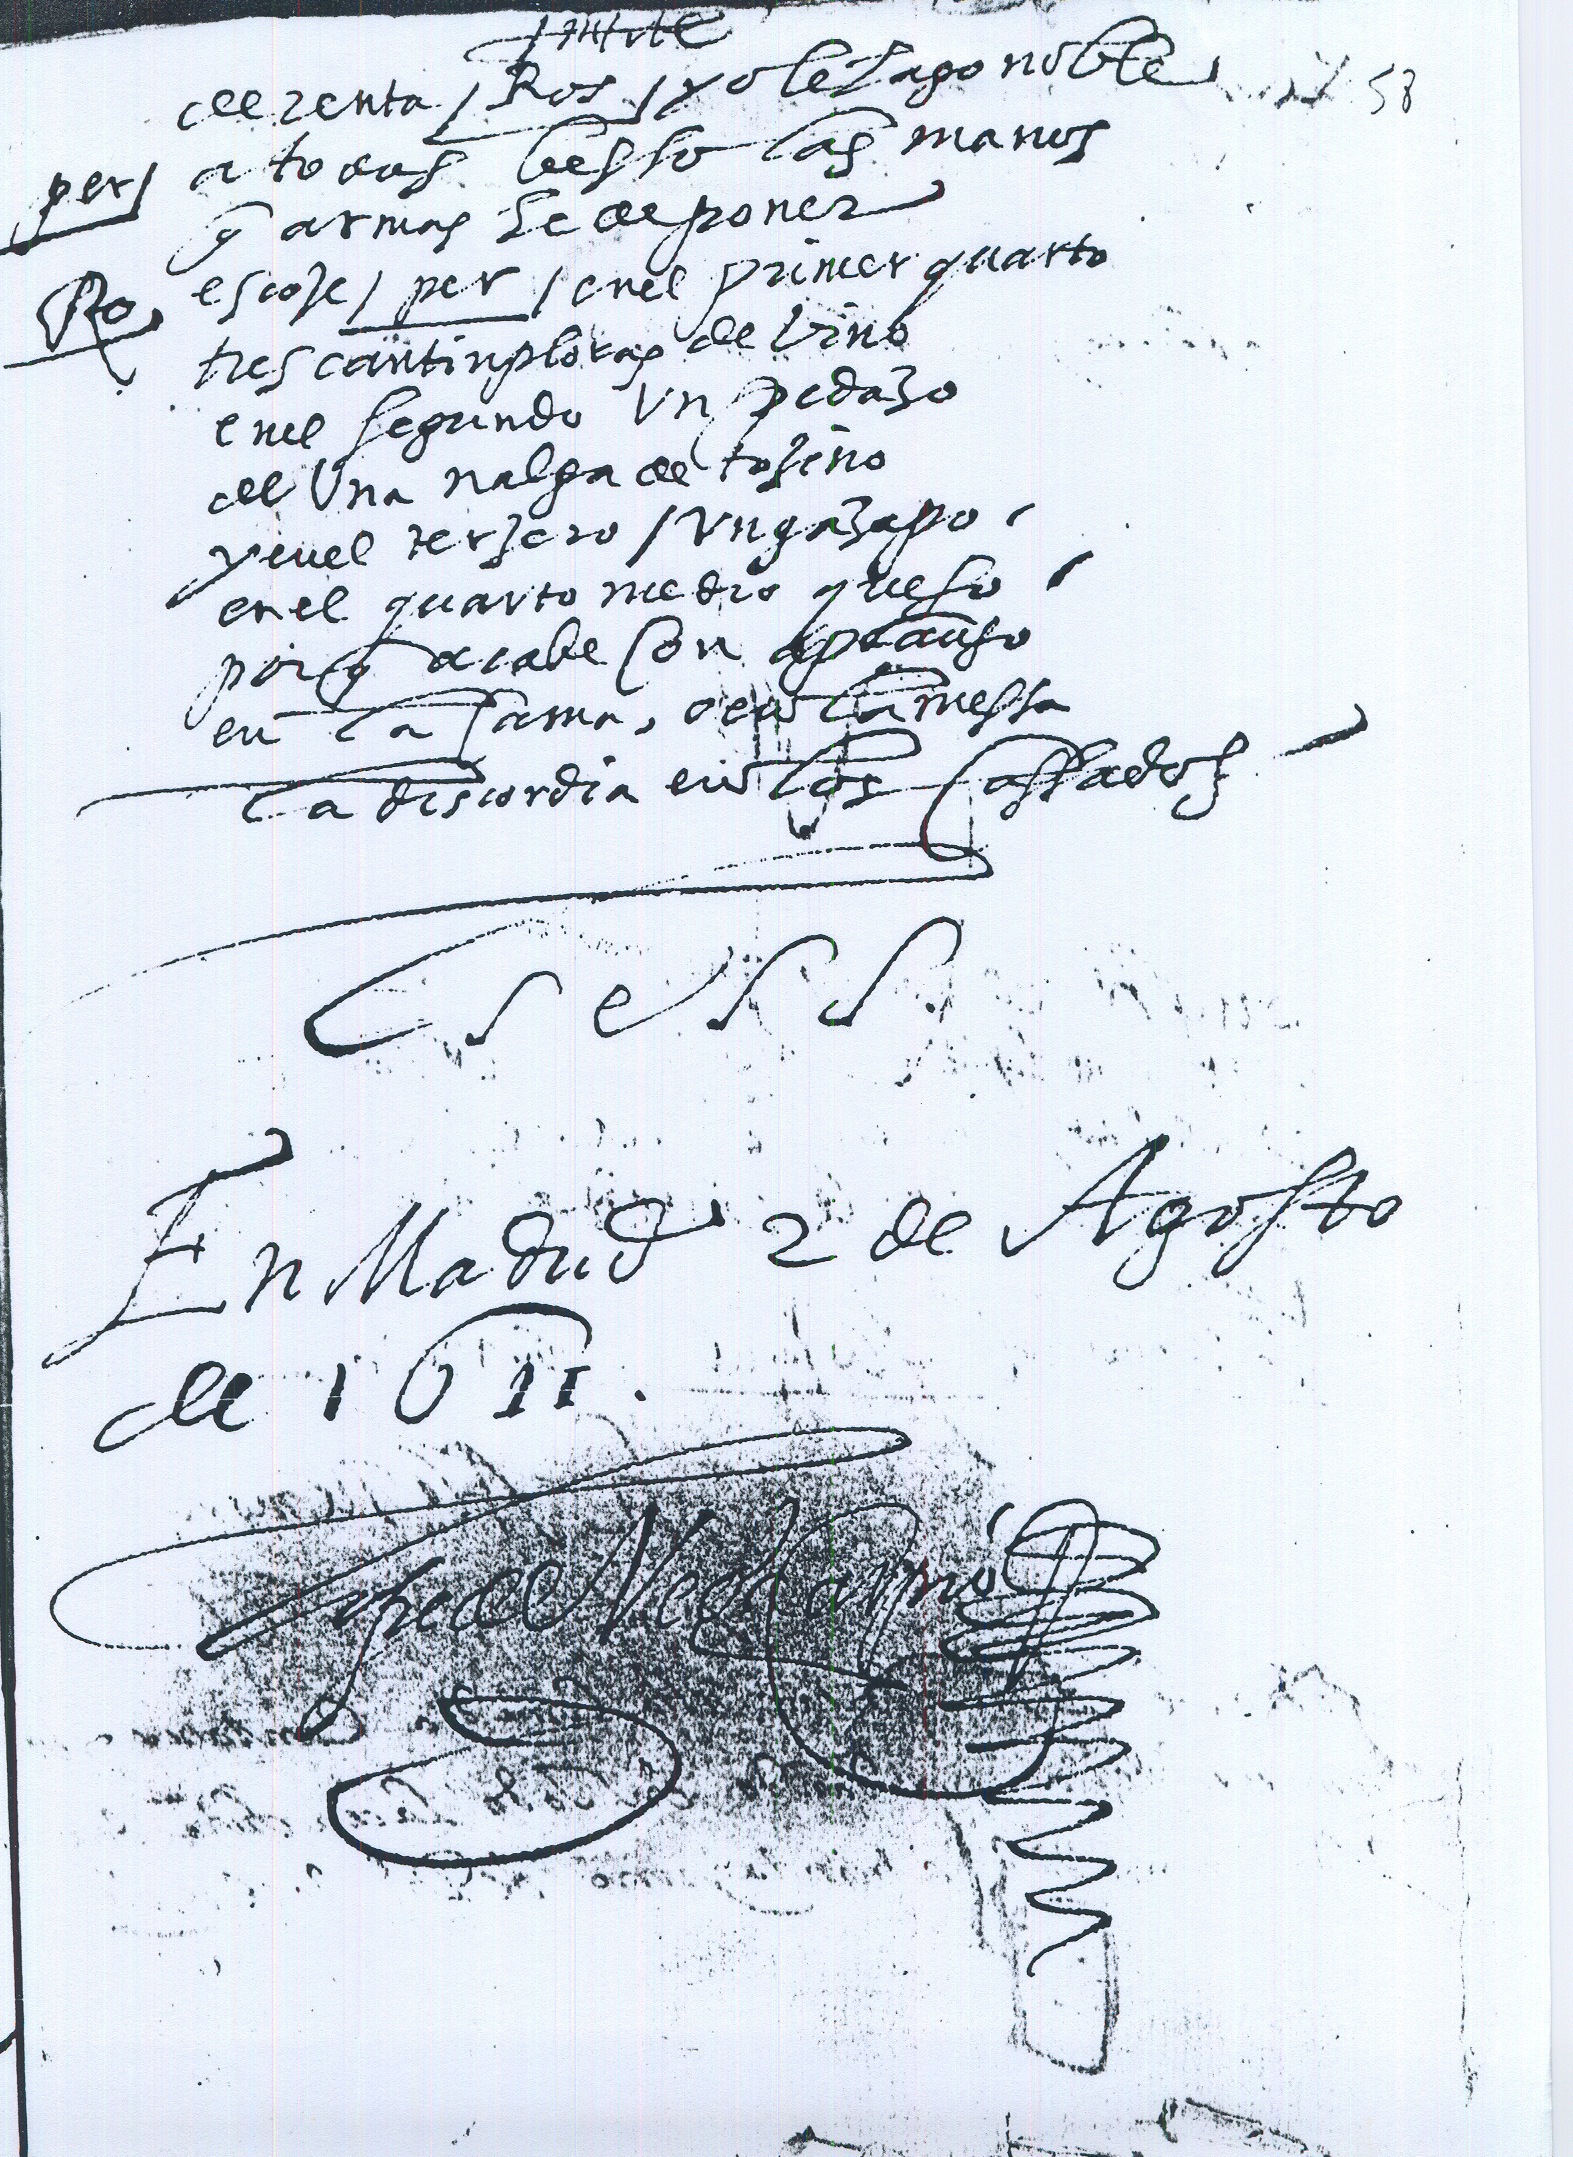 de renta / Ros / yo le hago noble 58
per / a todos besso las manos
q̄ armas he de poner
Ro escoje / per / en el primer quarto
tres cantinploras de vino
en el segundo vn pedazo
de Vna nalga de tozino
y en el terzero / vn gazapo
en el quarto medio queso
porq̄ acabe con aplauso
en la cama, o en la messa
la discordia en los cassados
En Madrid 2 de Agosto
de 1611.
Lope de Vega Carpio